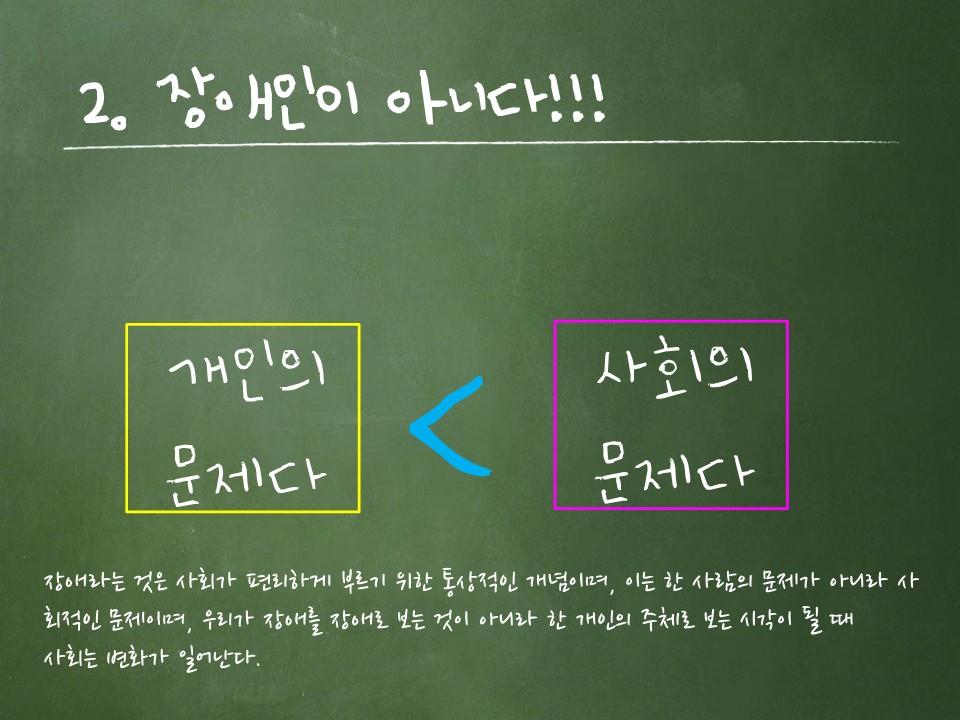 2. 장애인이 아니다!!!
개인의
문제다
<
사회의
문제다
장애라는 것은 사회가 편리하게 부르기 위한 통상적인 개념이며, 이는 한 사람의 문제가 아니라 사
회적인 문제이며, 우리가 장애를 장애로 보는 것이 아니라 한 개인의 주체로 보는 시각이 될 때
사회는 변화가 일어난다.